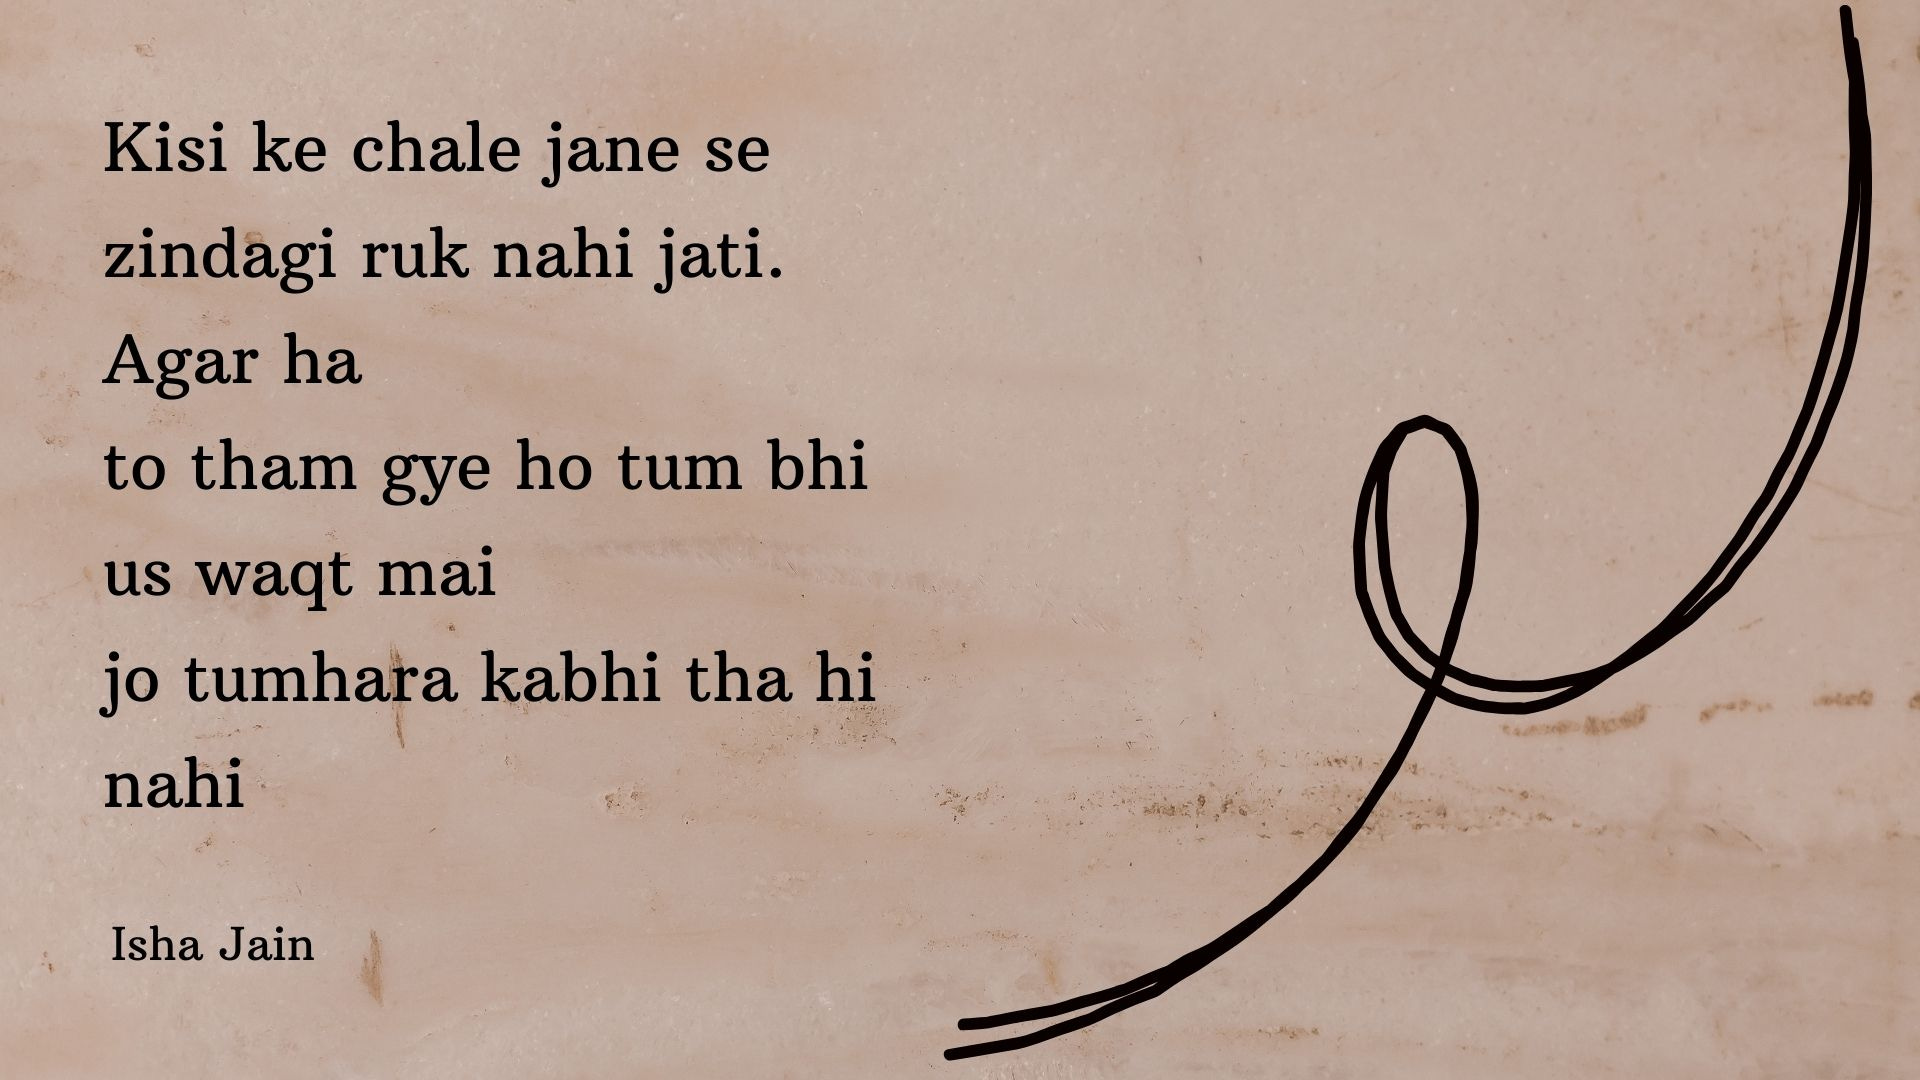 Kisi ke chale jane se
zindagi ruk nahi jati.
Agar ha
to tham gye ho tum bhi
us waqt mai
jo tumhara kabhi tha hi
nahi
Isha Jain